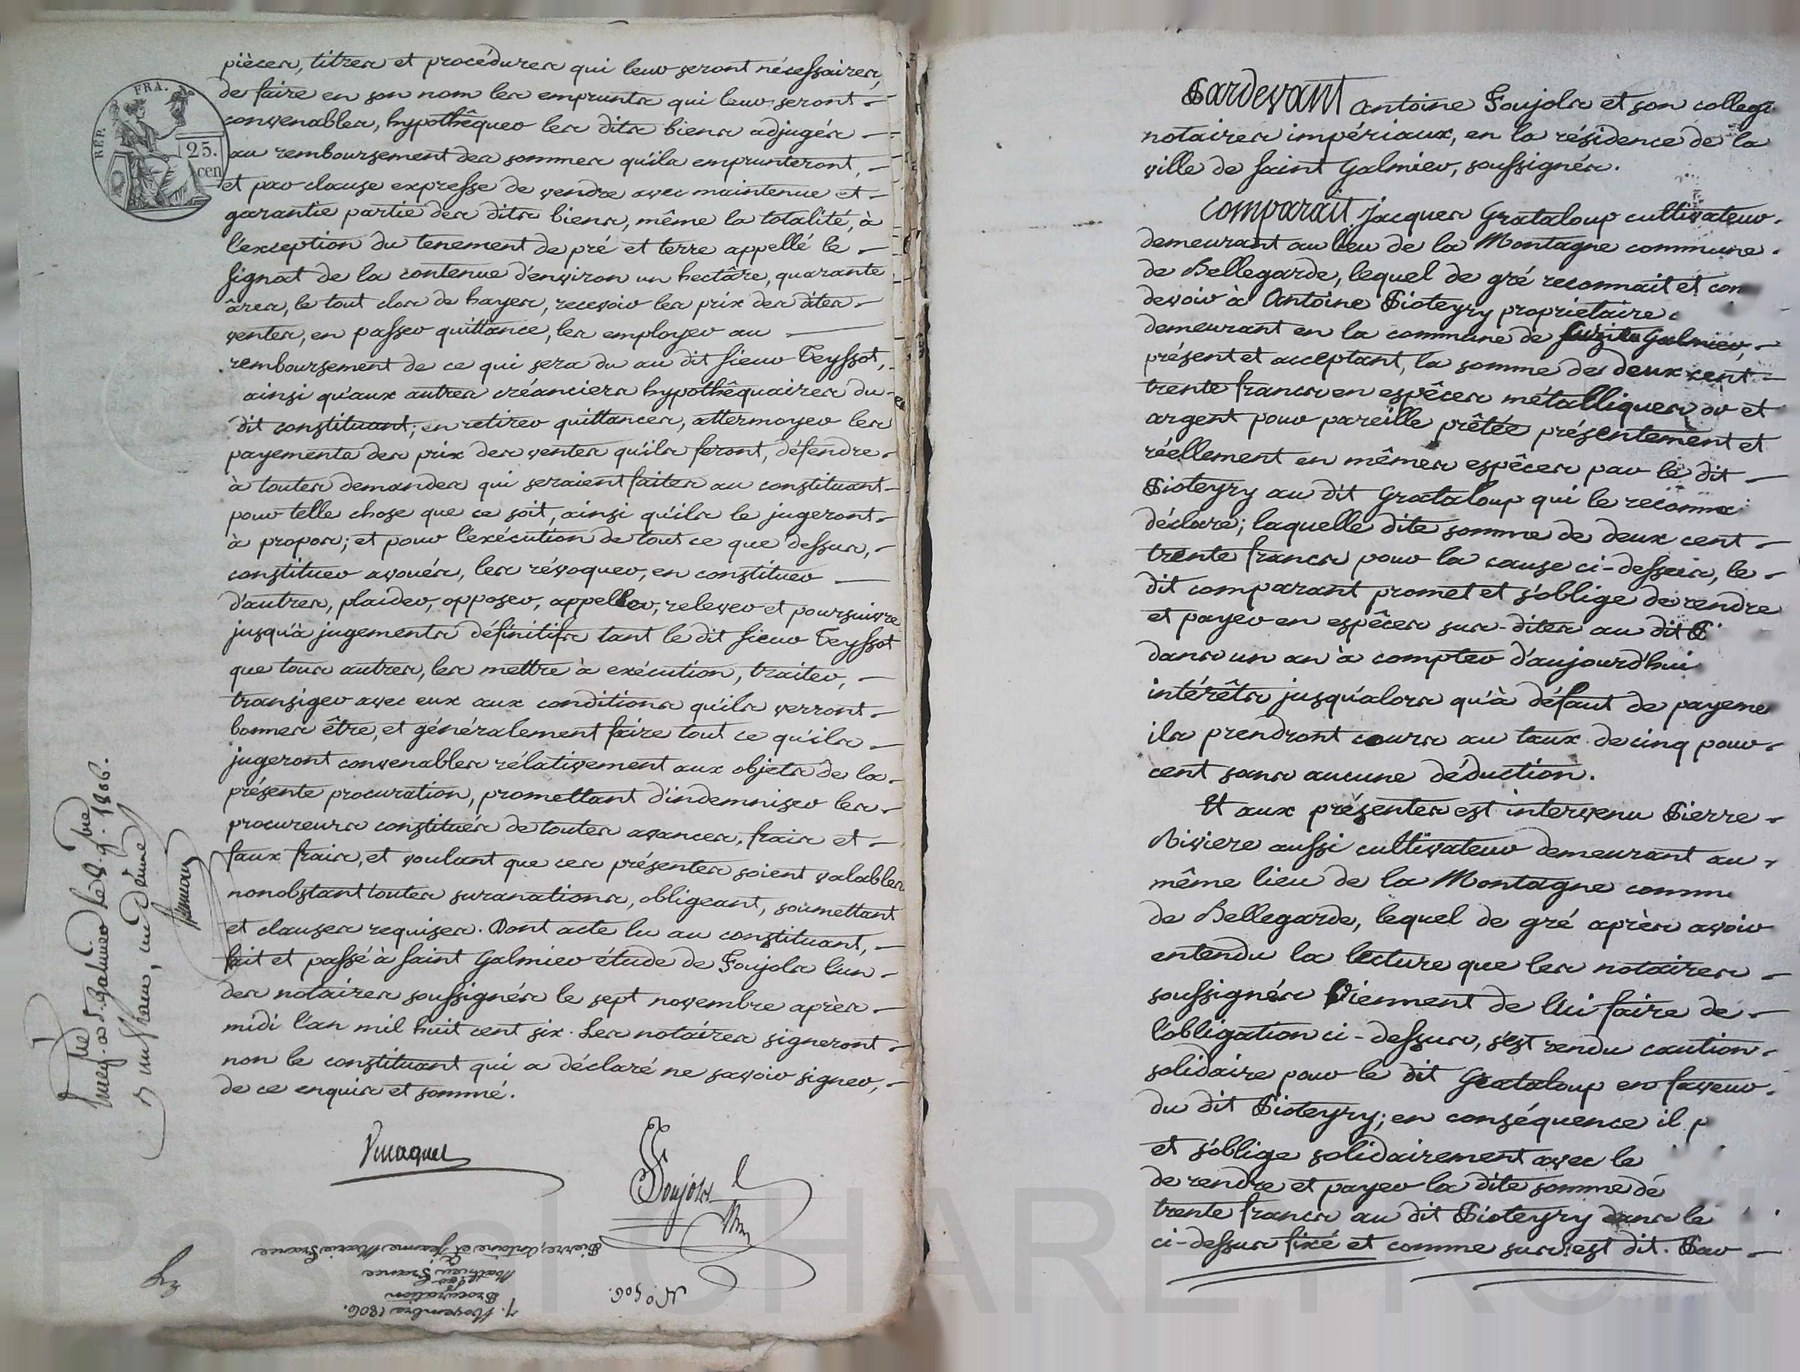 RÉP. FRA.
25.
cen
pièces, titres et procédures qui leur seront nécessaires,
de faire en son nom les emprunts qui leur seront
convenables, hypothêquer les dits biens adjugés
au remboursement des sommes qu'ils emprunteront,
et par clause expresse de vendre avec maintenue et
garantie partie des dits biens, même la totalité, à
l'exception du tenement de pré et terre appellé le
Signat de la contenue d'environ un hectâre, quarante
âres, le tout clos de hayes, recevoir les prix des dites
ventes, en passer quittance, les employer au
remboursement de ce qui sera du au dit sieur Teyssot,
ainsi qu'aux autres créanciers hypothêquaires du
dit constituant, en retirer quittances, attermoyer les
payements des prix des ventes qu'ils feront, défendre
à toutes demandes qui seraient faites au constituant
pour telle chose que ce soit, ainsi qu'ils le jugeront
à propos; et pour l'exécution de tout ce que dessus,
constituer avoués, les révoquer, en constituer
d'autres, plaider, opposer, appeller, relever et poursuivre
jusqu'à jugements définitifs tant le dit sieur Teyssot
que tous autres, les mettre à exécution, traiter,
transiger avec eux aux conditions qu'ils verront
bonnes être, et généralement faire tout ce qu'ils
jugeront convenables rélativement aux objets de la
présente procuration, promettant d'indemniser les
procureurs constitués de toutes avances, frais et
faux frais, et voulant que ces présentes soient valables
nonobstant toutes suranations, obligeant, soumettant
et clauses requises. Dont acte lu au constituant,
fait et passé à Saint Galmier étude de Poujols l'un
des notaires soussignés le sept novembre après
midi l'an mil huit cent six. Les notaires signeront
non le constituant qui a déclaré ne savoir signer,
de ce enquis et sommé.
Poujols
Enreg. à St. Galmier le 8 9bre 1806.
un franc,
N.º 506.
7. Novembre 1806.
Procuration
par
Mathieu France
à
Pierre, Antoine et Jeanne Marie France
Pardevant Antoine Poujols et son collegu
notaires impériaux, en la résidence de la
ville de Saint Galmier, soussignés.
Comparait Jacques Grataloup cultivateur
demeurant au lieu de la Montagne commune
de Bellegarde, lequel de gré reconnait et con
devoir à Antoine Pioteyry propriétaire
demeurant en la commune de Galmier,
présent et acceptant, la somme de deux cent
trente francs en espêces métalliques or et
argent pour pareille prêtée présentement et
réellement en mêmes espêces par le dit
Pioteyry au dit Grataloup qui le reconna
déclare; laquelle dite somme de deux cent
trente francs pour la cause ci-dessus, le
dit comparant promet et s'oblige de rendre
et payer en espêces sus-dites au dit P
dans un an à compter d'aujourd'hui
intérêts jusqu'alors qu'à défaut de payeme
ils prendront cours au taux de cinq pour
cent sans aucune déduction.
Et aux présentes est intervenu Pierre
Riviere aussi cultivateur demeurant au
même lieu de la Montagne commu
de Bellegarde, lequel de gré après avoir
entendu la lecture que les notaires
soussignés viennent de lui faire de
l'obligation ci-dessus, s'est rendu caution
solidaire pour le dit Grataloup en faveur
du dit Pioteyry; en conséquence il p
et s'oblige solidairement avec le
de rendre et payer la dite somme de
trente francs au dit Pioteyry dans le
ci-dessus fixé et comme sus est dit. Par
Pascal CHARETRON